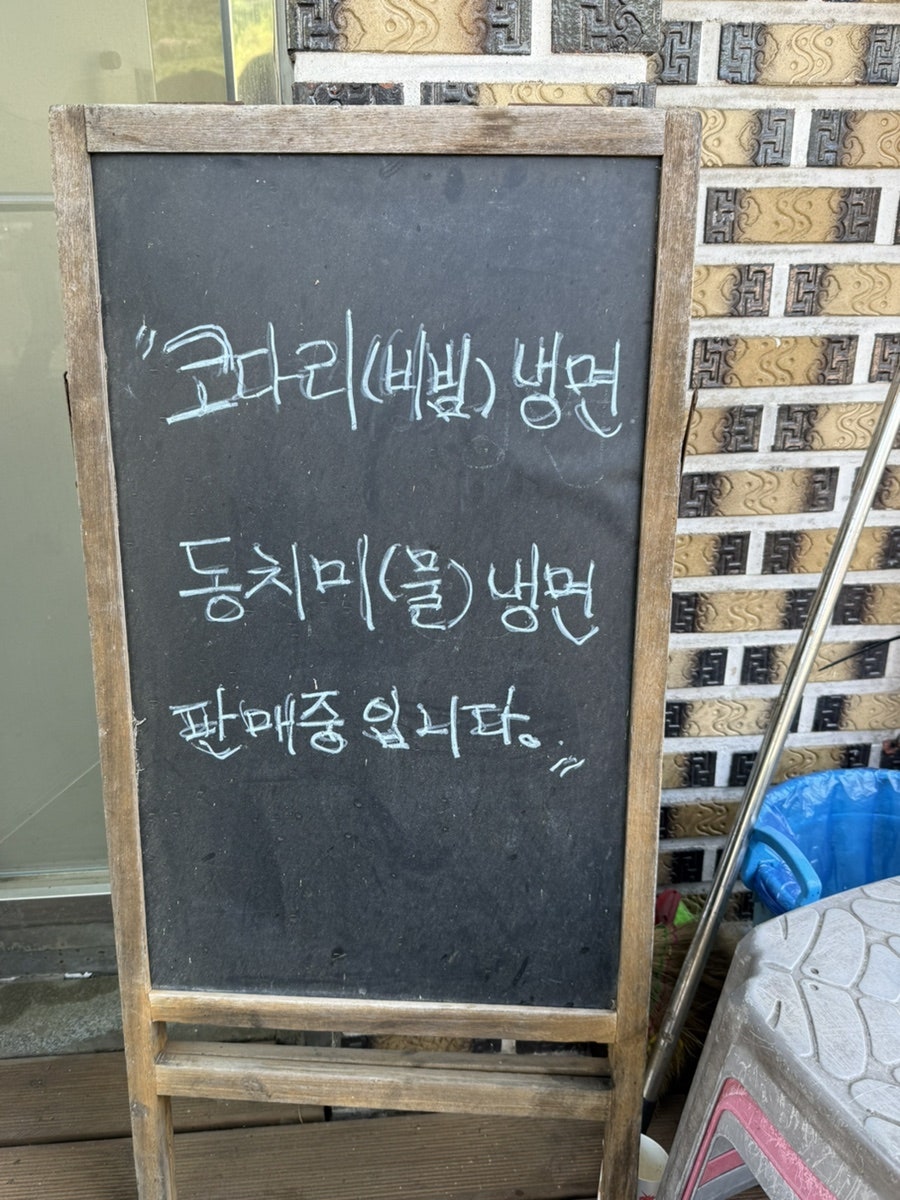 "코다리(비빔)냉면
동치미(물)냉면
판매중입니다."